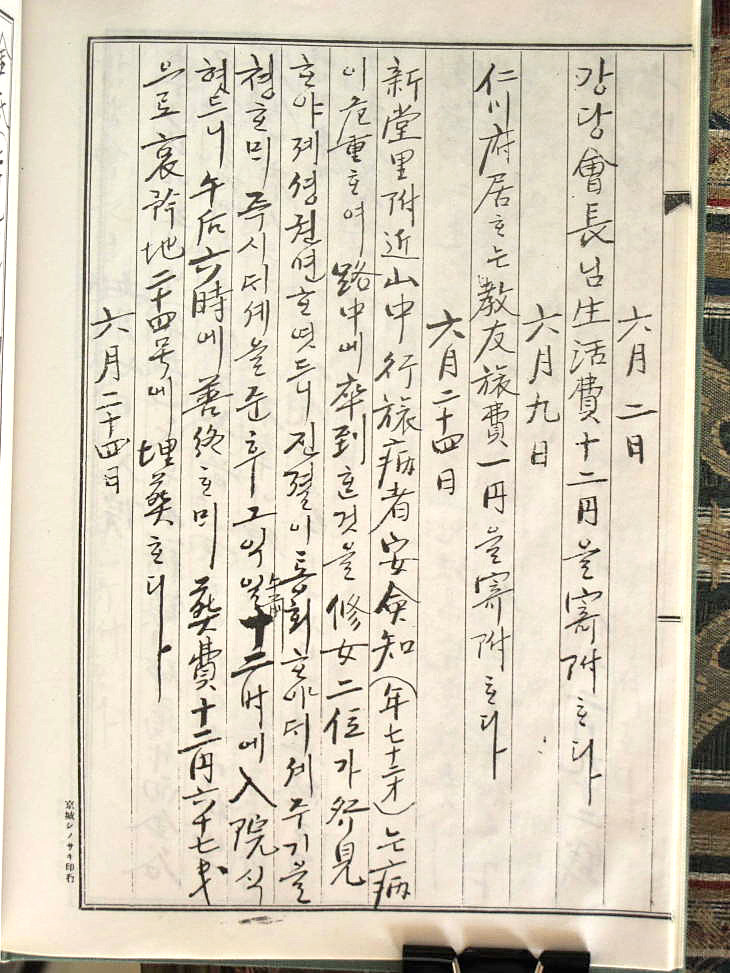 六月二日
강당會長님生活費十二円을寄附ᄒᆞ다
六月九日
仁川府居ᄒᆞᄂᆞᆫ教友旅費一円을寄附ᄒᆞ다
六月二十四日
新堂里附近山中行旅病者安僉知(年七十二才)는病
이危重ᄒᆞ여路中에卒到ᄒᆞᆫ것을修女二位가發見
ᄒᆞ야 권면ᄒᆞ엿드니진졀이통회ᄒᆞ야듸셰주기를
쳥ᄒᆞᄆᆡ즉시듸셰를준후그익일午前十二時에入院식
혓드니午后六時에善終ᄒᆞᄆᆡ葬費十二円六十七戋
으로哀矜地二十四号에埋葬ᄒᆞ다
六月二十四日
京城シノサキ印行